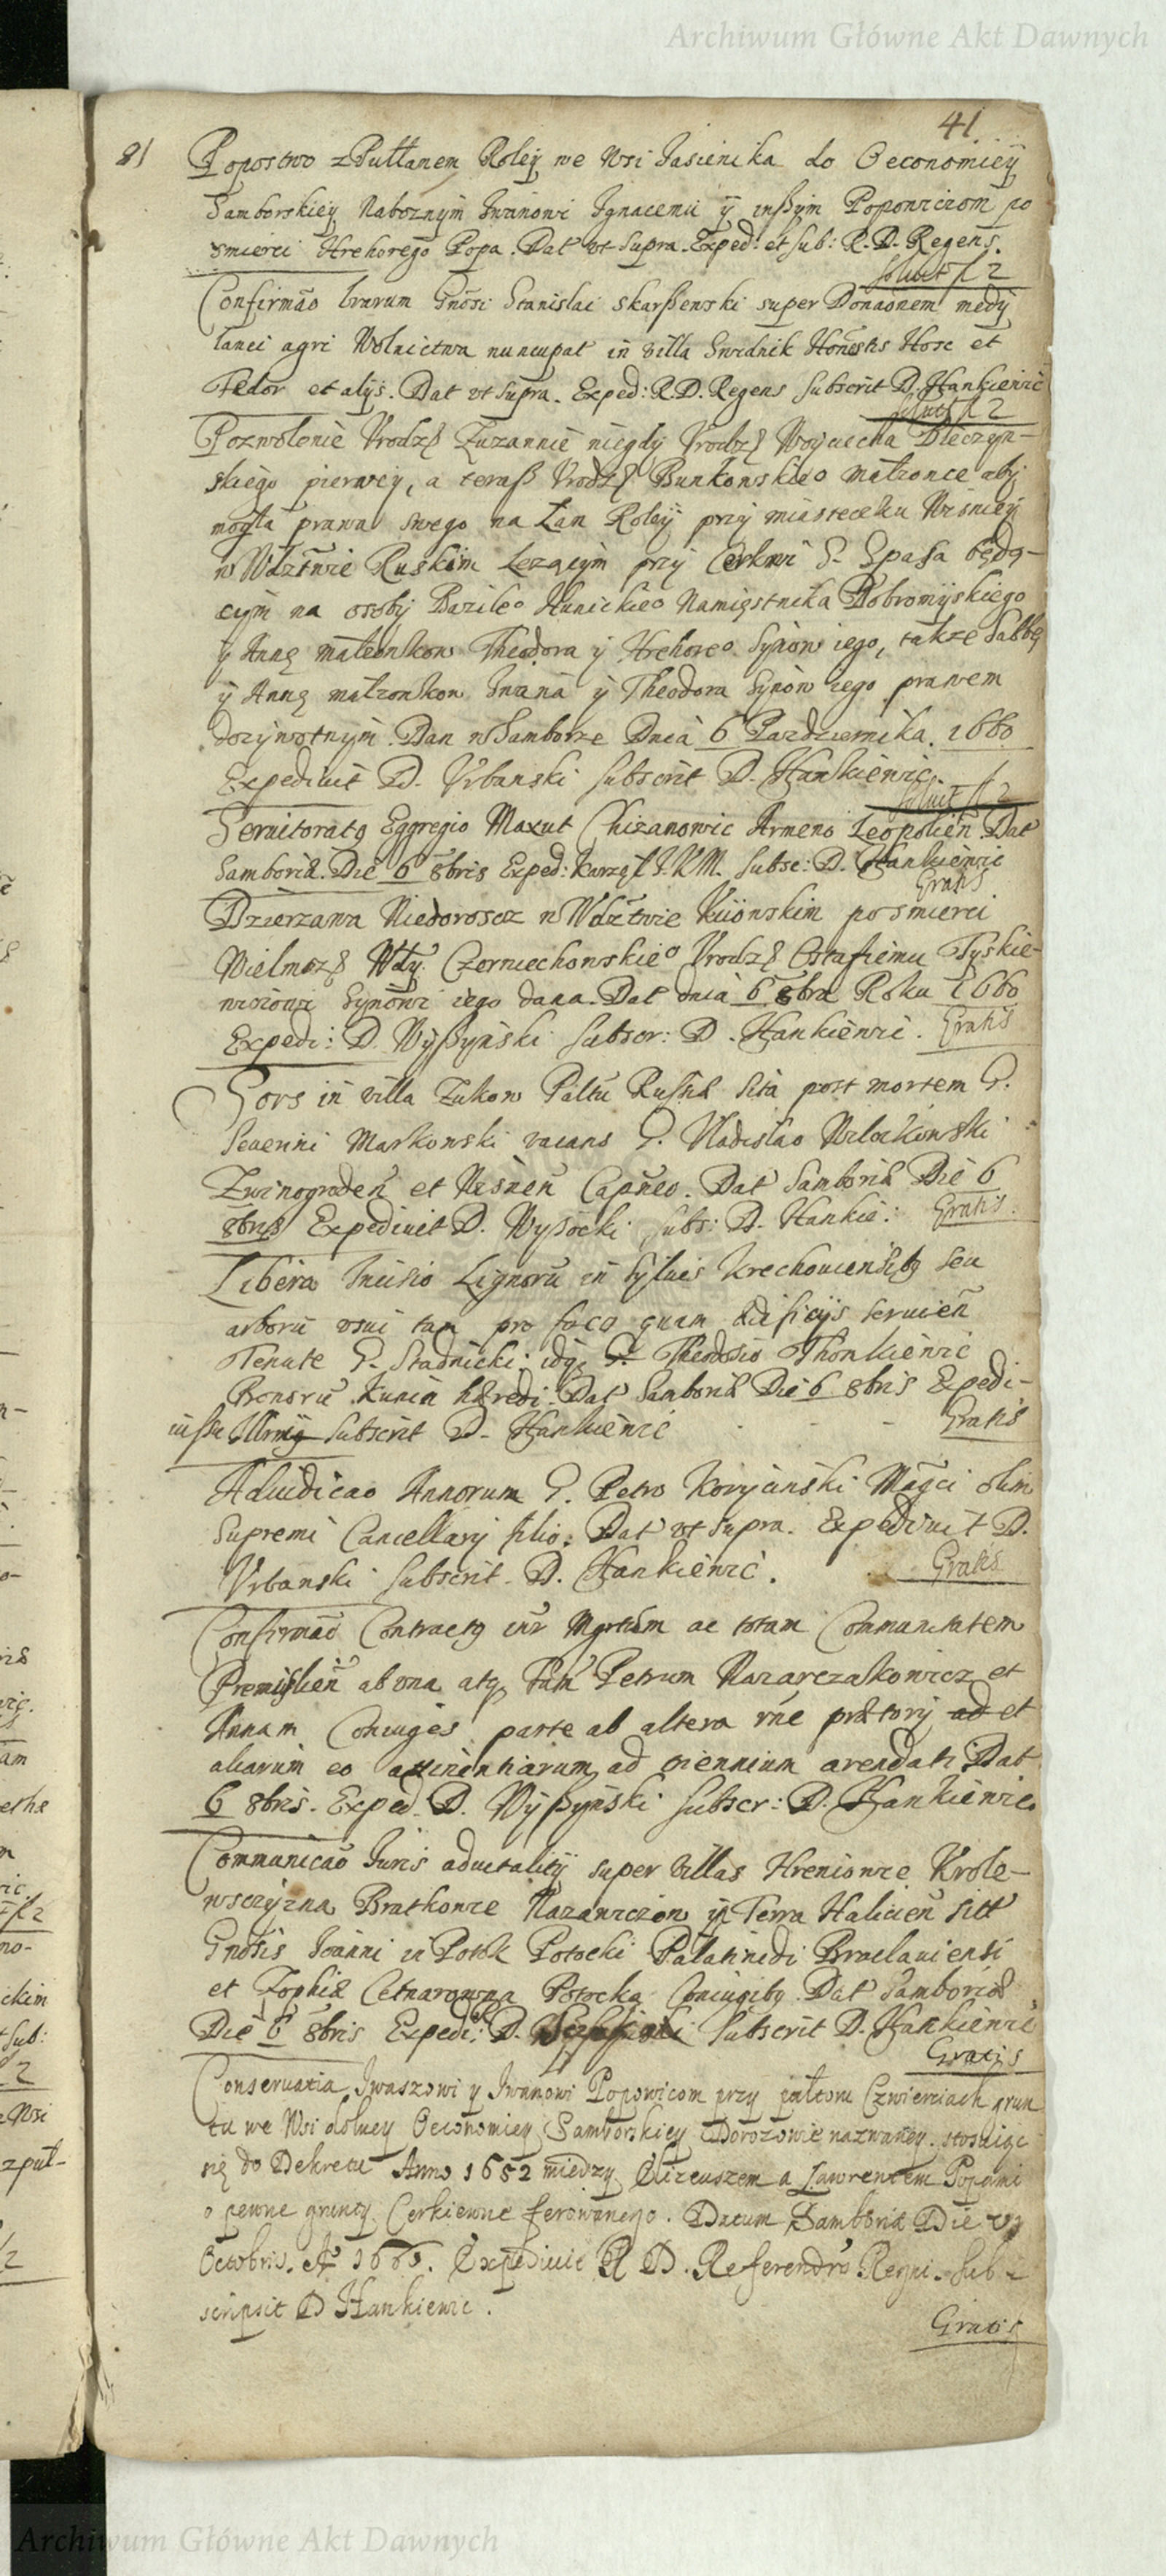 Archiwum Główne Akt Dawnych
41
81
Popostwo z Pułłanem Roley we Wsi Jasienicka do Oeconomiey
Samborskiey Naboznym Iwanowi Ignacemu ÿ inßym Popowiczom po
smierci Hrehorego Popa. Dat vt supra. Exped: et sub: R. D. Regens.
soluit f 2
Confirmao lrarum Gnosi Stanislai Skarßewski super Donaonem medÿ
lanei agri Wolnictwa nuncupat in villa Swidnik Honestis Hosc et
Fedor et alÿs. Dat vt supra. Exped: R. D. Regens subscrit D. Hankiewic
soluit f 2
Pozwolenie Vrodz Zuzannie niegdy Vrodz Woyciecha Bleczyn-
skiego pierwey, a teraß Vrodz Bunkowskieo małzonce aby
mogła prawa swego na Łan Roley przy miasteczku Wisniey
w Wdztwie Ruskim Lezącym przy Cerkwi S. Spasa będą-
cym na osoby Bazileo Hunickieo Namięstnika Dobromyskiego
y Annę małzonkow Theodora y Hrehoreo Synow iego, takze
ÿ Annę małzonkow Iwana ÿ Theodora Synow iego prawem
dozywotnym. Dan w Samborze Dnia 6 Pazdziernika. 1660
Expediuit D. Vrbanski subscrit D. Hankiewic.
soluit f 2
Seruitoratg Eggregio Maxut Chizanowic Armeno Leopolien. Dat
Samboriæ. Die 6 8bris Exped: J. K M. subsc: D. Hankiewic
Gratis
Dzierzawa Niedoroscz w Wdztwie Kiionskim po smierci
Wielmoz Wdy. Czerniechowskieo Vrodz Ostafiemu Tyskie-
wiczowi Synowi iego dana. Dat dnia 6 8bra Roku 1660
Expedi: D. Wyßynski subscr: D. Hankiewic. Gratis
Sors in villa Zukow Paltu Russiæ sita post mortem G.
Seuerini Markowski vacans G. Vladislao Wilczkowski
Zwinogroden et Wisnen Capneo. Dat Samboriæ Die 6
8bris Expediuit D. Wysocki subs: D. Hankie: Gratis.
Libera Incisio Lignoru in syluis Krechouiensibg seu
arboru vsui tam pro foco quam ædificijs seruien
Tenute G. Stadnicki idg G. Theodosio Thonkiewic
Bonoru Kunin hæredi. Dat Samboriæ Die 6 8bris Expedi-
subscrit D. Hankiewic
Gratis
Adiudicao Annorum G. Petro Korycinski Magci olim
Supremi Cancellarÿ filio. Dat vt supra. Expediuit D.
Vrbanski subscrit. D. Hankiewic.
Gratis
Confirmao Contractg inr Mgrtum ac totam Communitatem
Premislien ab vna atq Fam Petrum Nazarczakowicz et
Annam Coniuges parte ab altera rne prætorÿ ad et
aliarum eo attinentiarum ad triennium arendati. Dat
6 8bris. Exped. D. Wyßynski subscr: D. Hankiewic.
Communicao Iuris aduitalitÿ super villas Hreniowce Krole-
wsczyzna Bratkowce Nazawiczow in Terra Halicien sitt
Gnosis Ioanni in Potok Potocki Palatinidi Braclauiensi
et Zophiæ Cetnarowna Potocka Coniugibg. Dat Samboriæ
Die 6 8bris Expedi: D. subscrit D. Hankiewic
Gratis
Conseruatia Iwaszowi y Iwanowi Popowicom przy połtoru Czwierciach grun
tu we Wsi dolney Oeconomiey Samborskiey Dorozowie nazwaney. stosuiąc
się do Dekretu Anno 1652 między Elizeuszem a Lawrentem Popami
o pewne grunty Cerkiewne ferowanego. Datum Samboriæ Die
Octobris. A 1660. Expediuit R D. Referendro Regni. Sub-
scripsit D Hankiewic.
Gratis
Archiwum Główne Akt Dawnych